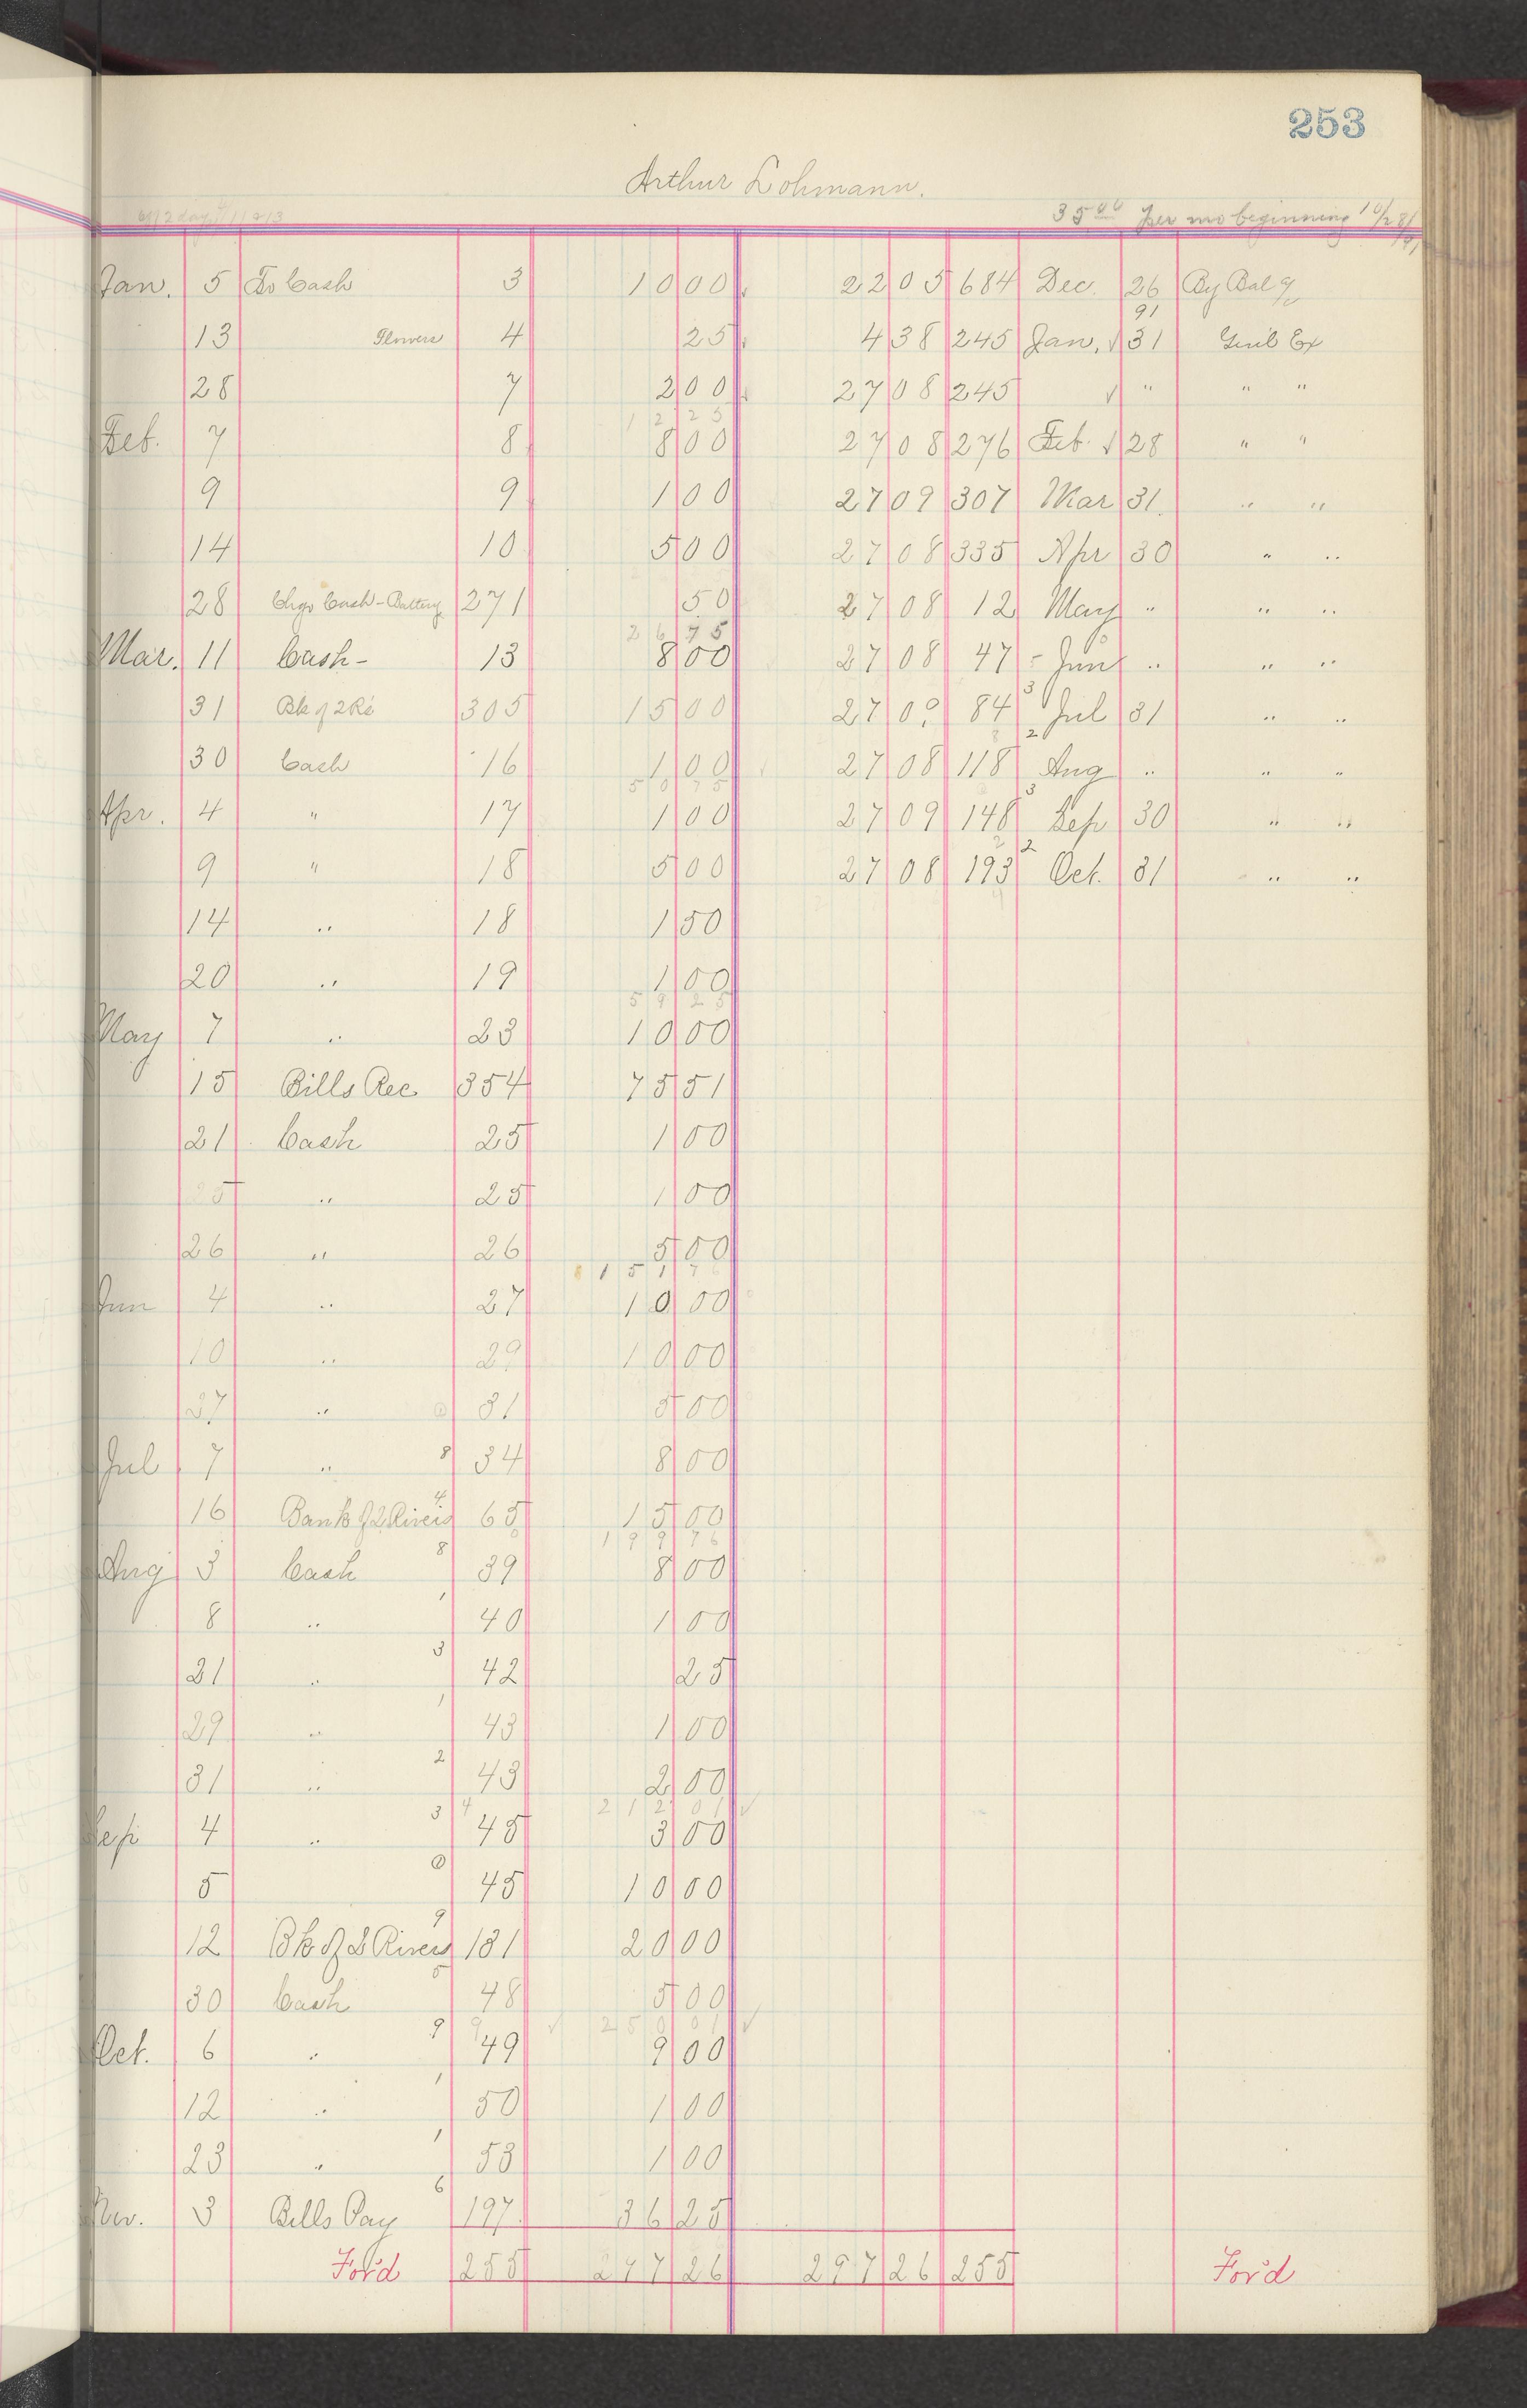 253
Arthur Lohmann.
35 00 Per mo beginning 10/28/91
Jan. 5 To Cash 3 10 00 22 05 684 Dec. 26 By Bal
91
13 Flowers 4 25 4 38 245 Jan. 31 Gen'l Ex
28 7 2 00 27 08 245 " " "
12 25
Feb. 7 8 8 00 27 08 276 Feb. 28 " "
9 9 1 00 27 09 307 Mar 31. " "
14 10 5 00 27 08 335 Apr 30 " "
28 Chgo Cash - Battery 271 50 27 08 12 May " " "
26 75
Mar. 11 Cash - 13 8 00 27 08 47 Jun " " "
31 Bk of 2 Rs 305 15 00 27 09 84 Jul 31 " "
30 Cash 16 1 00 27 08 118 Aug " " "
50 75
Apr. 4 " 17 1 00 27 09 148 Sep 30 " "
9 " 18 5 00 27 08 193 Oct. 31 " "
14 " 18 1 50
20 " 19 1 00
59 25
May 7 " 23 10 00
15 Bills Rec 354 75 51
21 Cash 25 1 00
25 " 25 1 00
26 " 26 5 00
151 76
Jun 4 " 27 10 00
10 " 29 10 00
27 " 31 5 00
Jul 7 " 8 34 8 00
16 Bank of 2 Rivers 4 65 15 00
199 76
Aug 3 Cash 8 39 8 00
8 " 1 40 1 00
21 " 3 42 25
29 " 1 43 1 00
31 " 2 43 2 00
212 01
Sep 4 " 3 45 3 00
5 45 10 00
12 Bk of 2 Rivers 9 131 20 00
30 Cash 5 48 5 00
250 01
Oct. 6 " 9 49 9 00
12 " 1 50 1 00
23 " 1 53 1 00
Nov. 3 Bills Pay 6 197 36 25
For'd 255 297 26 297 26 255 For'd